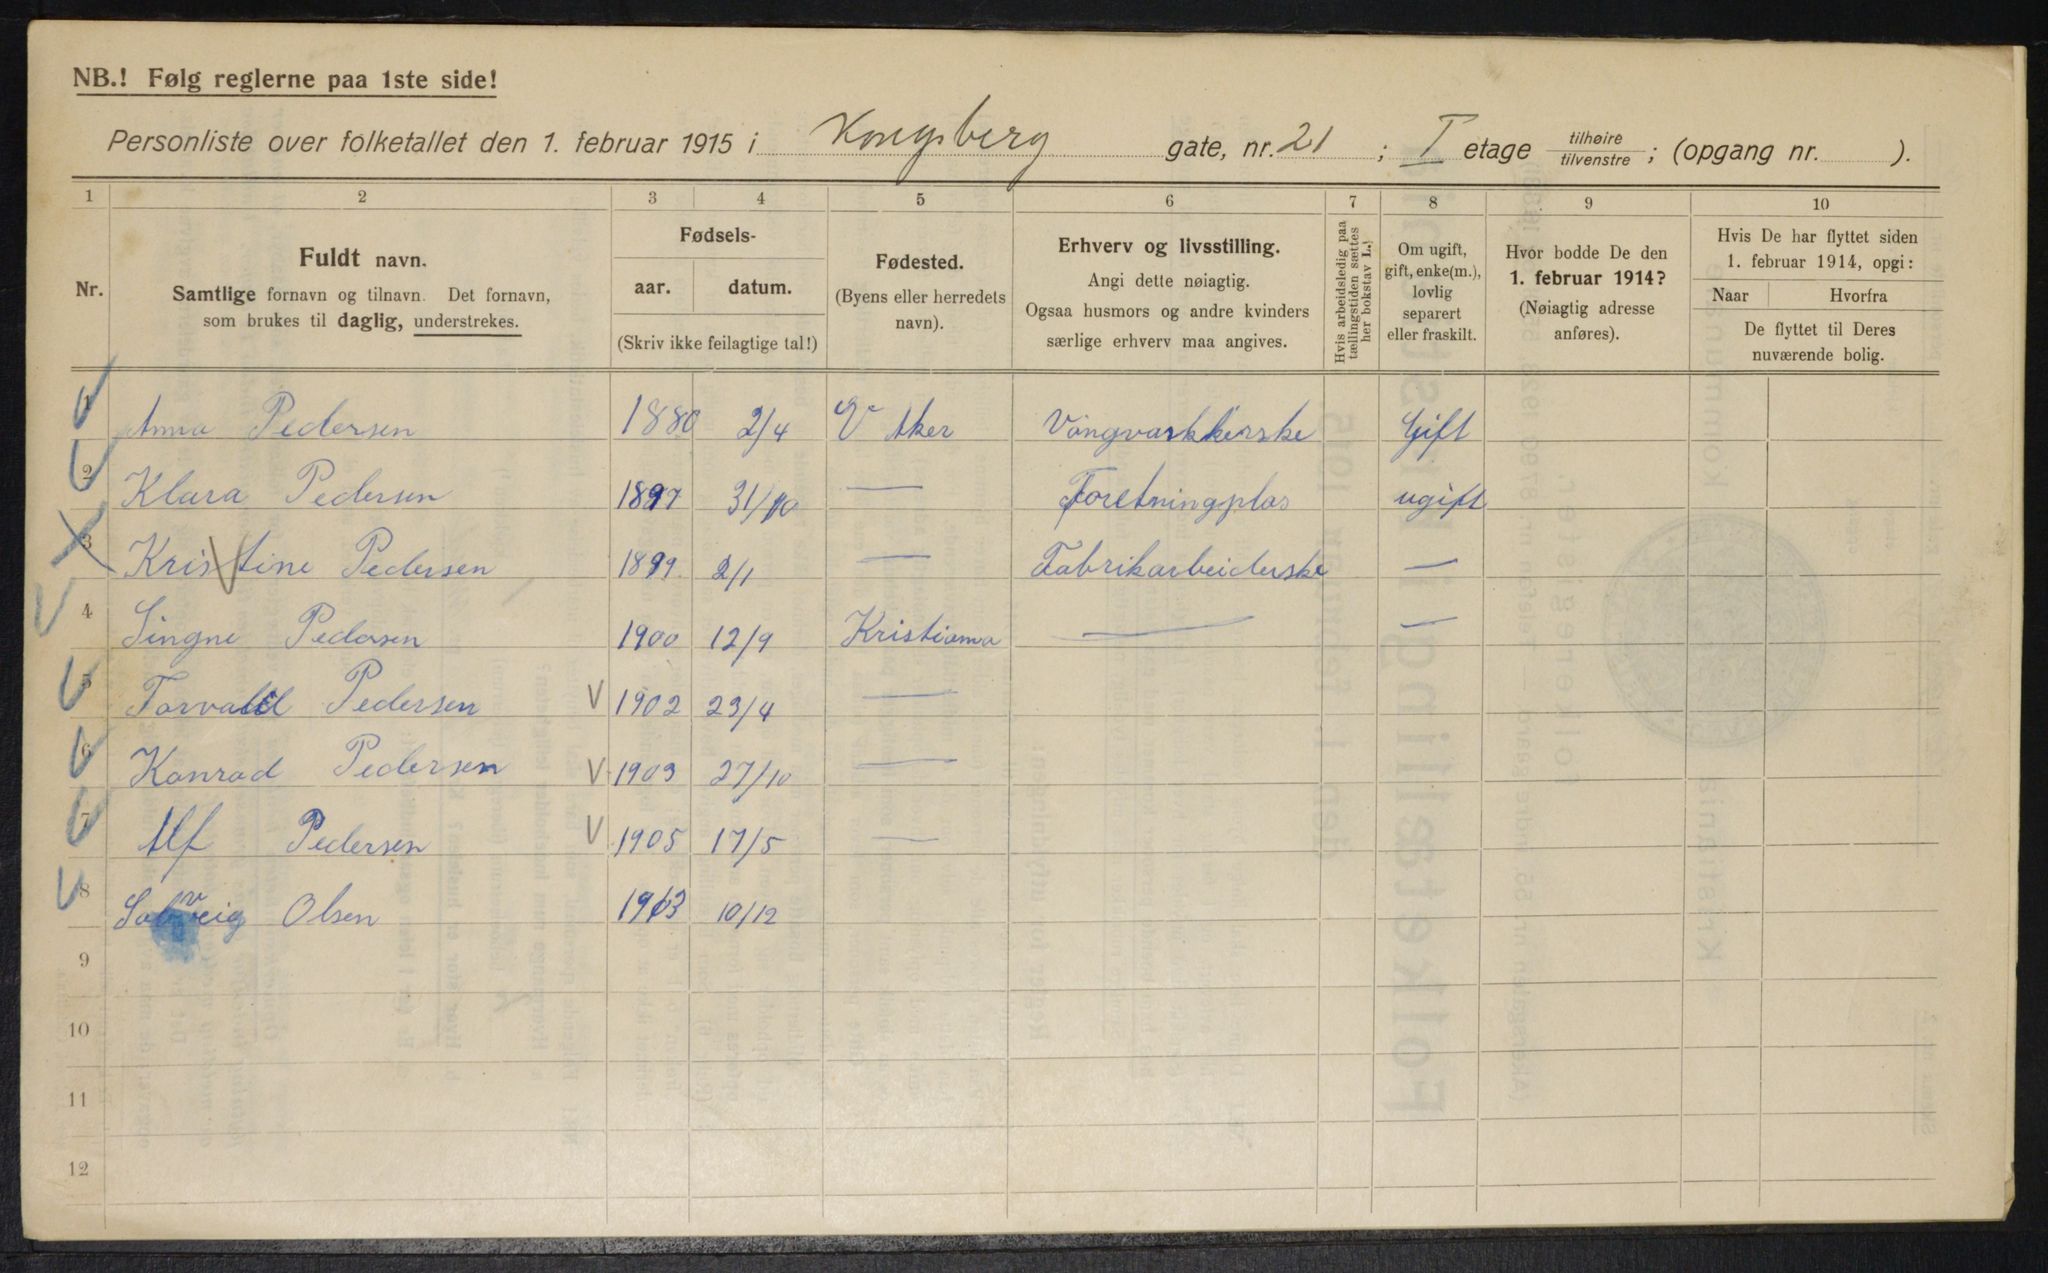 NB.! Følg reglerne paa 1ste side!
Personliste over folketallet den 1. februar 1915 i Kongsberg gate, nr. 21 ; I etage tilhøire tilvenstre ; (opgang nr. ).
1 2 3 4 5 6 7 8 9 10
Nr.
Fuldt navn.
Samtlige fornavn og tilnavn. Det fornavn,
som brukes til daglig, understrekes.
Fødsels-
aar. datum.
(Skriv ikke feilagtige tal!)
Fødested.
(Byens eller herredets
navn).
Erhverv og livsstilling.
Angi dette nøiagtig.
Ogsaa husmors og andre kvinders
særlige erhverv maa angives.
Hvis arbeidsledig paa
tællingstiden sættes
her bokstav L.)
Om ugift,
gift, enke(m.),
lovlig
separert
eller fraskilt.
Hvor bodde De den
1. februar 1914?
(Nøiagtig adresse
anføres).
Hvis De har flyttet siden
1. februar 1914, opgi:
Naar Hvorfra
De flyttet til Deres
nuværende bolig.
1 Anna Pedersen 1880 2/4 V Aker Vongvaskkerske Gift
2 Klara Pedersen 1897 31/10 — Foretningplas ugift
3 Kristine Pedersen 1899 2/1 — Fabrikarbeiderske —
4 Singne Pedersen 1900 12/9 Kristiania — —
5 Torvald Pedersen V 1902 23/4 —
6 Konrad Pedersen V 1903 27/10 —
7 Alf Pedersen V 1905 17/5 —
8 Solveig Olsen 1913 10/12
9
10
11
12